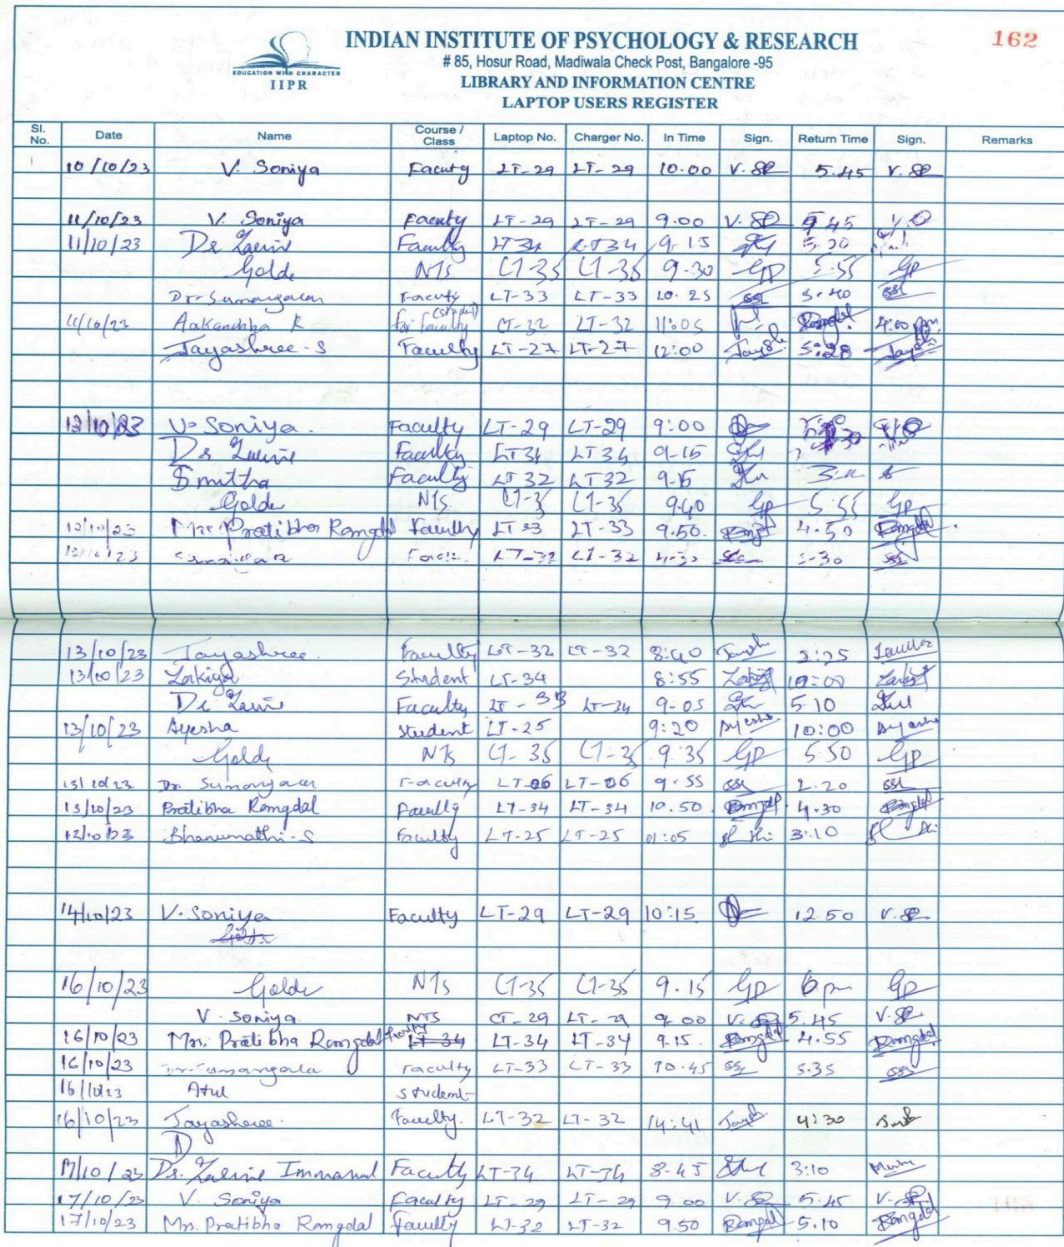 162
INDIAN INSTITUTE OF PSYCHOLOGY & RESEARCH
# 85, Hosur Road, Madiwala Check Post, Bangalore -95
EDUCATION WITH CHARACTER
IIPR
LIBRARY AND INFORMATION CENTRE
LAPTOP USERS REGISTER
Sl. No. Date Name Course / Class Laptop No. Charger No. In Time Sign. Return Time Sign. Remarks
10/10/23 V. Soniya Facuty LT-29 LT-29 10.00 V. SR 5.45 V. SR
11/10/23 V. Soniya Faculty LT-29 LT-29 9.00 V. SR 5.45
11/10/23 Dr Zaline Faculty LT34 LT34 9.15 5.20
Golda NTs LT-35 LT-35 9-30 GP 5.55 GP
Dr. Sumangala Faculty LT-33 LT-33 10.25 SSL 5.40 SSL
11/10/23 Aakanchha R For faculty (student) LT-32 LT-32 11:05 4:00 pm
Jayashree-S Faculty LT-27 LT-27 12:00 Jaysh 5:28 Jaysh
12/10/23 V. Soniya. Faculty LT-29 LT-29 9:00
Dr Zaline Faculty LT34 LT34 9-15
Smitha Faculty LT32 LT32 9.15
Golda NTs LT-35 9.40 GP 5.55 GP
12/10/23 Mrs. Pratibha Romgdal Faculty LT33 LT-33 9.50. Romgdal 4.50 Romgdal
12/10/23 LT-32 LT-32 4.30 5-30 SSL
13/10/23 Jayashree. Faculty LT-32 LT-32 8:40 3:25
13/10/23 Zakiya Student LT-34 8:55 10:00
Dr Zaline Faculty LT-34 9-05 5.10
13/10/23 Ayesha Student LT-25 9:20 Ayesha 10:00 Ayesha
Golda NTs LT-35 LT-35 9.35 GP 5.50 GP
13/10/23 Dr Sumangala Faculty LT-06 LT-06 9.55 SSL 2.20 SSL
13/10/23 Pratibha Romgdal Faculty LT-34 LT-34 10.50 Romgdal 4.30 Romgdal
Bhanumathi-S Faculty LT-25 LT-25 01:05 3:10
14/10/23 V. Soniya Faculty LT-29 LT-29 10:15 12.50 V. SR
16/10/23 Golda NTs LT-35 LT-35 9.15 GP 6 pm GP
V. Soniya NTS LT-29 LT-29 9.00 5.45 V. SR
16/10/23 Mrs. Pratibha Romgdal Faculty LT-34 LT-34 LT-34 9.15. Romgdal 4.55 Romgdal
16/10/23 Dr. Sumangala Faculty LT-33 LT-33 10.45 SSL 5.35 SSL
16/10/23 Atul Student
16/10/23 Jayashree. Faculty. LT-32 LT-32 14:41 Jaysh 4:30
17/10/23 Dr. Zaline Immanuel Faculty LT-34 LT-34 8-45 3:10
17/10/23 V. Soniya Faculty LT-29 LT-29 9.00 V. SR 5.45 V. SR
17/10/23 Mrs. Pratibha Romgdal Faculty LT-32 LT-32 9.50 Romgdal 5.10 Romgdal